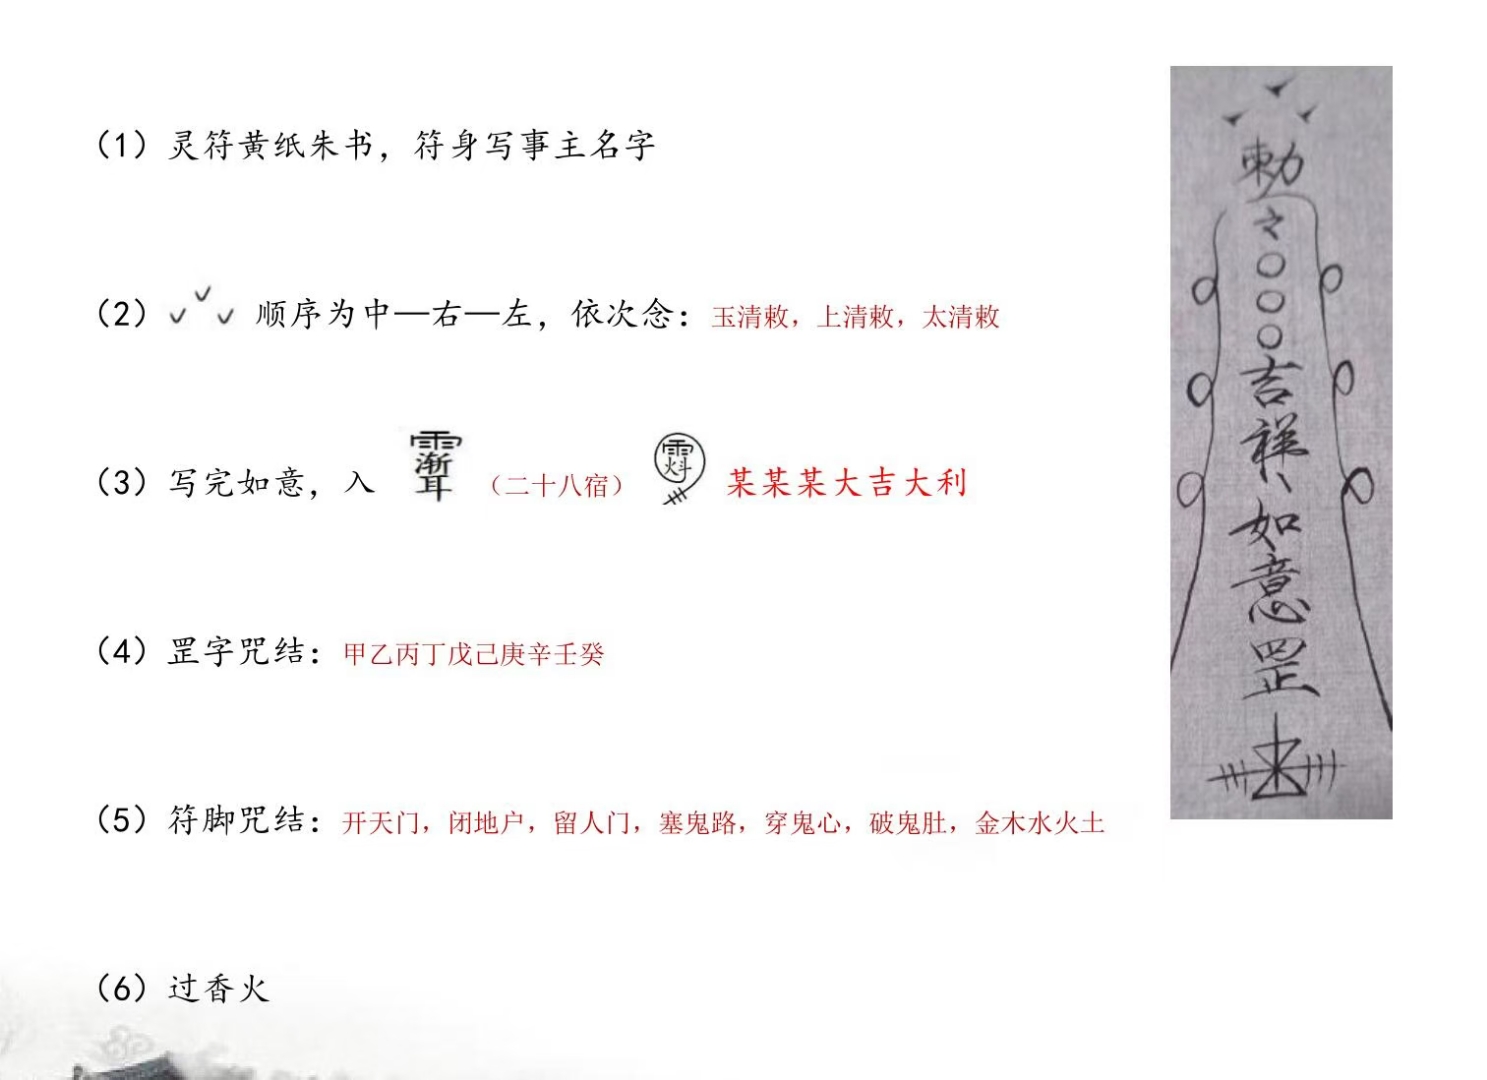 （1）灵符黄纸朱书，符身写事主名字
（2） 顺序为中—右—左，依次念：玉清敕，上清敕，太清敕
（3）写完如意，入 （二十八宿） 某某某大吉大利
（4）罡字咒结：甲乙丙丁戊己庚辛壬癸
（5）符脚咒结：开天门，闭地户，留人门，塞鬼路，穿鬼心，破鬼肚，金木水火土
（6）过香火
勅
〇〇〇
吉祥
如意罡